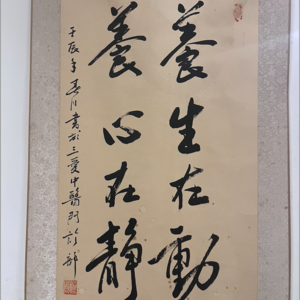 養生在動
養心在靜
壬辰年夏月書於三愛中醫門診部